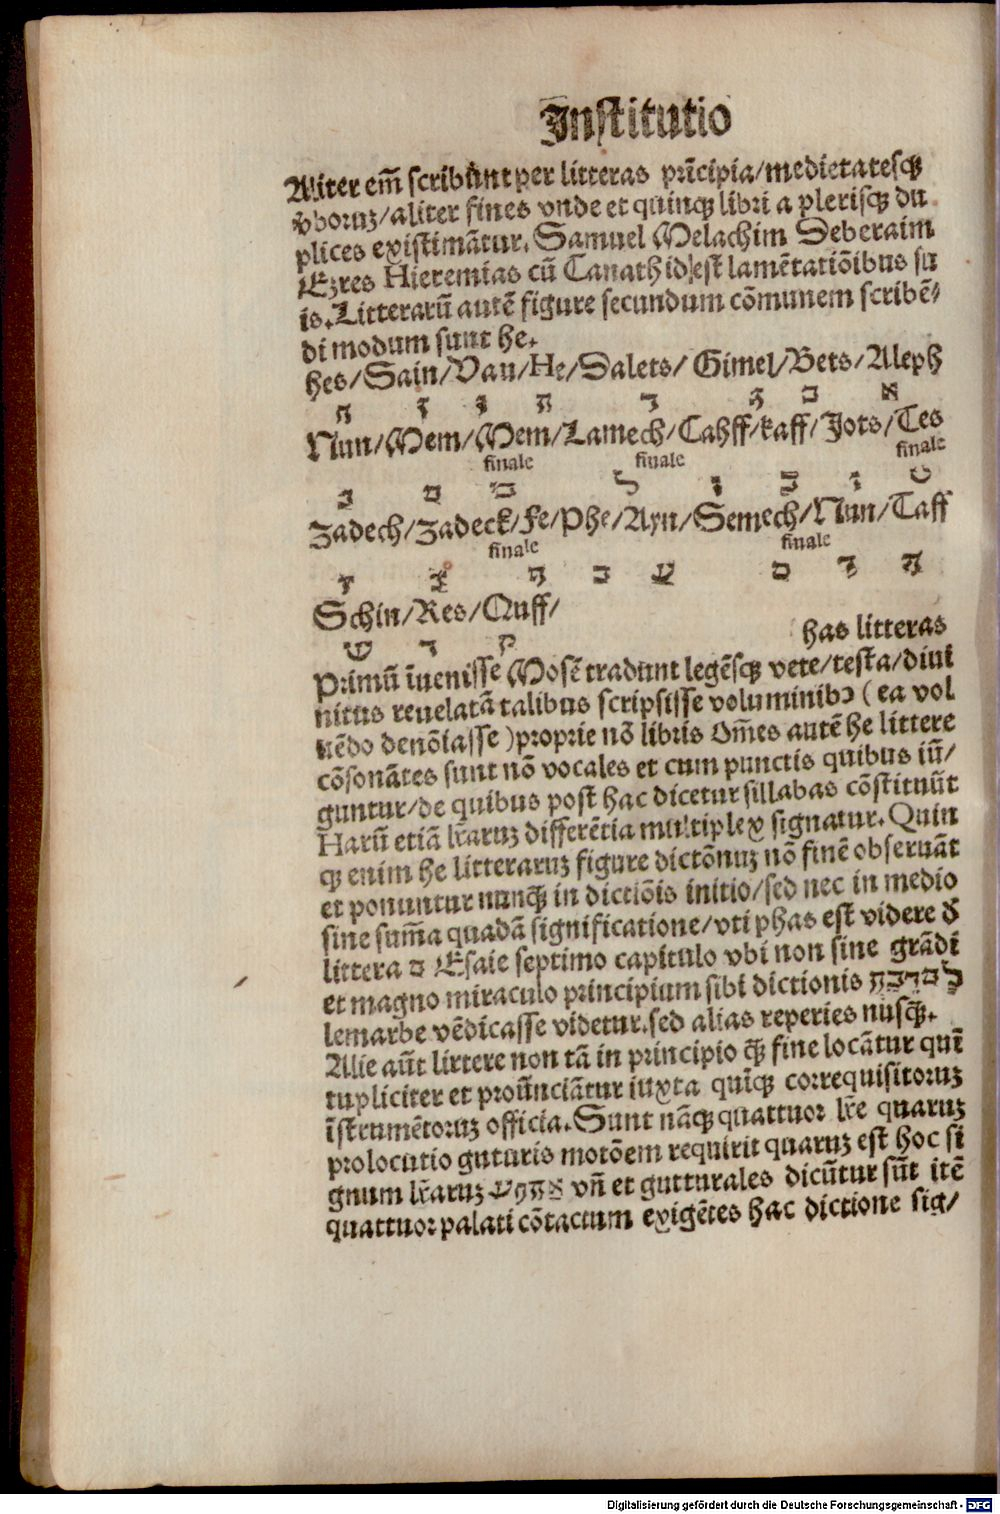 Institutio
Aliter em̄ scribūnt per litteras prīcipia/medietatesqꝫ
v̄boruꝫ/aliter fines vnde et quinqꝫ libri a plerisqꝫ du
plices existimātur. Samuel Melachim Deberaim
Eꝫres Hieremias cū Canath id est lamētatiōibus su
is. Litterarū autē figure secundum cōmunem scribē/
di modum sunt he.
hes/Sain/Vau/He/Dalets/ Gimel/Bets/Aleph
ח ז ו ה ד ג ב א
Nun/Mem/Mem/Lamech/Cahff/kaff/Jots/Tes
finale finale finale
נ מ ם ל ך כ י ט
Zadech/Zadeck/Fe/Phe/Ayn/Semech/Nun/Taff
finale finale
ץ צ ף פ ע ס ן ת
Schin/Res/Quff/
ש ר ק
has litteras
Primū īuenisse Mosē tradunt legēsqꝫ vete/testa/diui
nitus reuelatā talibus scripsisse voluminibꝰ (ea vol
uēdo denōīasse) proprie nō libris Om̄es autē he littere
cōsonātes sunt nō vocales et cum punctis quibus iū/
guntur/de quibus post hac dicetur sillabas cōstituūt
Harū etiā lr̄aruꝫ differētia multiplex signatur. Quin
qꝫ enim he litteraruꝫ figure dictōnuꝫ nō finē obseruāt
et ponuntur nunqꝫ̄ in dictiōis initio/sed nec in medio
sine sum̄a quadā significatione/vti phas est videre d̄
littera ם Esaie septimo capitulo vbi non sine grādi
et magno miraculo principium sibi dictionis לםרבה
lemarbe vēdicasse videtur. sed alias reperies nusqꝫ̄.
Alie aūt littere non tā in principio qꝫ̄ fine locātur quī
tupliciter et proūnciātur iuxta quīqꝫ correquisitoruꝫ
īstrumētoruꝫ officia. Sunt nāqꝫ quattuor lr̄e quaruꝫ
prolocutio guturis motōem requirit quaruꝫ est hoc si
gnum lr̄aruꝫ אחהע vn̄ et gutturales dicūtur sūt itē
quattuor palati cōtactum exigētes hac dictione sig/
Digitalisierung gefördert durch die Deutsche Forschungsgemeinschaft - DFG